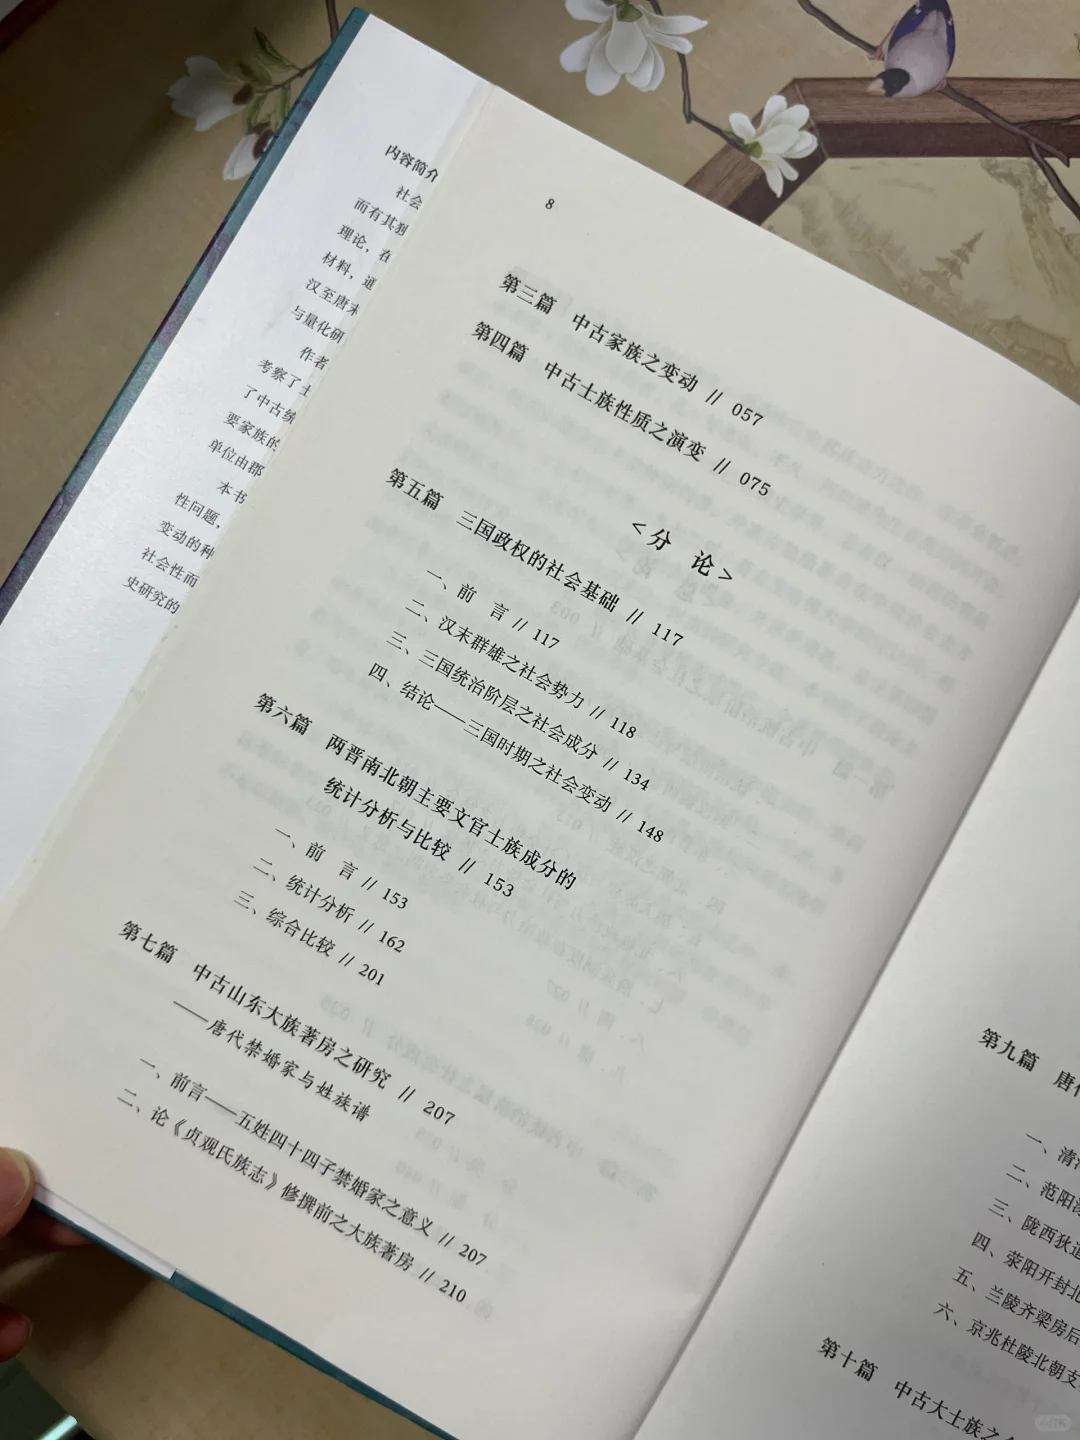 内容简介
社会
而有其独
理论，在
材料，通
汉至唐末
与量化研
作者
考察了士
了中古统
要家族的
单位由郡
本书
性问题，
变动的种
社会性而
史研究的
8
第三篇 中古家族之变动 // 057
第四篇 中古士族性质之演变 // 075
<分 论>
第五篇 三国政权的社会基础 // 117
一、前 言 // 117
二、汉末群雄之社会势力 // 118
三、三国统治阶层之社会成分 // 134
四、结论——三国时期之社会变动 // 148
第六篇 两晋南北朝主要文官士族成分的
统计分析与比较 // 153
一、前 言 // 153
二、统计分析 // 162
三、综合比较 // 201
第七篇 中古山东大族著房之研究 // 207
——唐代禁婚家与姓族谱
一、前言——五姓四十四子禁婚家之意义 // 207
二、论《贞观氏族志》修撰前之大族著房 // 210
第九篇 唐
一、清
二、范阳
三、陇西狄道
四、荥阳开封北
五、兰陵齐梁房后
六、京兆杜陵北朝支
第十篇 中古大士族之